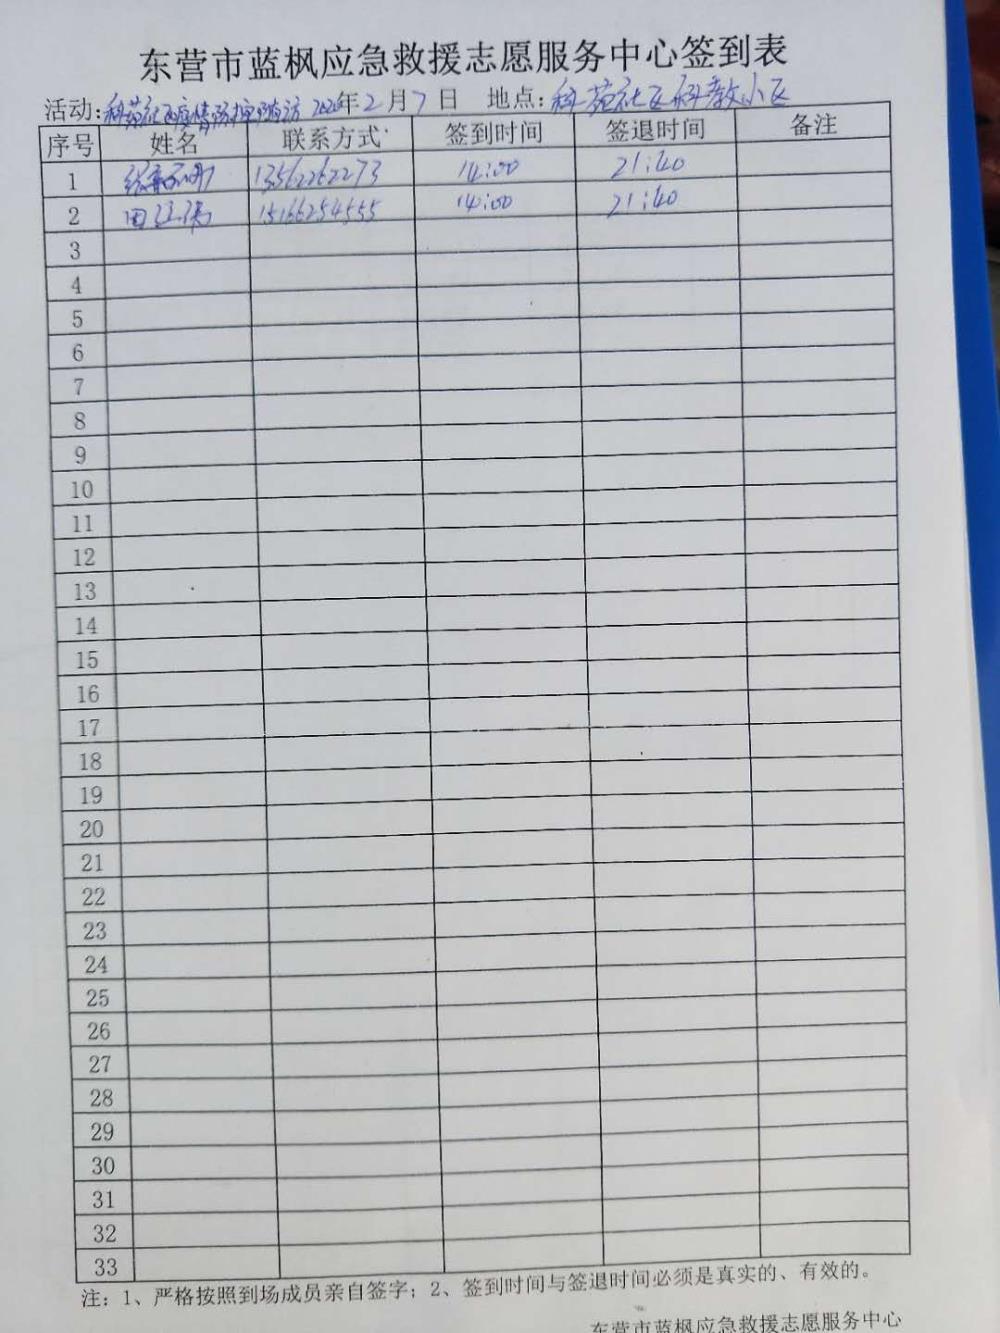 东营市蓝枫应急救援志愿服务中心签到表
活动:科苑社区疫情防控随访 2020年2月7日 地点:科苑社区科教小区
序号 姓名 联系方式 签到时间 签退时间 备注
1 13562262273 14:00 21:40
2 田江涛 15166254555 14:00 21:40
3
4
5
6
7
8
9
10
11
12
13
14
15
16
17
18
19
20
21
22
23
24
25
26
27
28
29
30
31
32
33
注:1、严格按照到场成员亲自签字;2、签到时间与签退时间必须是真实的、有效的。
东营市蓝枫应急救援志愿服务中心